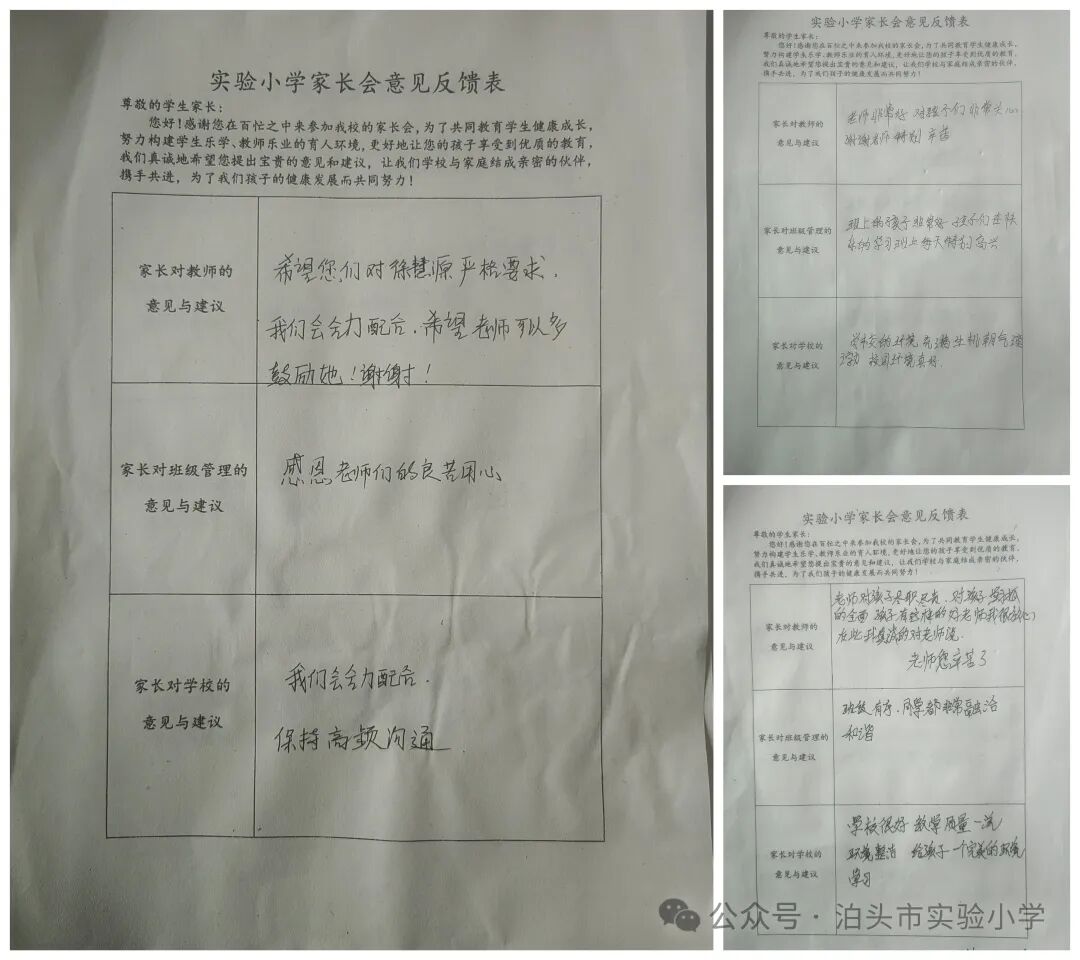 实验小学家长会意见反馈表
尊敬的学生家长：
您好！感谢您在百忙之中来参加我校的家长会，为了共同教育学生健康成长，
努力构建学生乐学、教师乐业的育人环境，更好地让您的孩子享受到优质的教育，
我们真诚地希望您提出宝贵的意见和建议，让我们学校与家庭结成亲密的伙伴，
携手共进，为了我们孩子的健康发展而共同努力！
家长对教师的
意见与建议
希望您们对徐慧源严格要求，
我们会全力配合，希望老师可以多
鼓励她！谢谢！
家长对班级管理的
意见与建议
感恩老师们的良苦用心
家长对学校的
意见与建议
我们会全力配合，
保持高频沟通
实验小学家长会意见反馈表
尊敬的学生家长：
您好！感谢您在百忙之中来参加我校的家长会，为了共同教育学生健康成长，
努力构建学生乐学、教师乐业的育人环境，更好地让您的孩子享受到优质的教育，
我们真诚地希望您提出宝贵的意见和建议，让我们学校与家庭结成亲密的伙伴，
携手共进，为了我们孩子的健康发展而共同努力！
家长对教师的
意见与建议
老师非常好 对孩子们非常关心
谢谢老师 特别辛苦
家长对班级管理的
意见与建议
班上的孩子非常好 孩子们在
的学习班上每天特别高兴
家长对学校的
意见与建议
学校的环境充满生机朝气
校园环境真好.
实验小学家长会意见反馈表
尊敬的学生家长：
您好！感谢您在百忙之中来参加我校的家长会，为了共同教育学生健康成长，
努力构建学生乐学、教师乐业的育人环境，更好地让您的孩子享受到优质的教育，
我们真诚地希望您提出宝贵的意见和建议，让我们学校与家庭结成亲密的伙伴，
携手共进，为了我们孩子的健康发展而共同努力！
家长对教师的
意见与建议
老师对孩子尽职尽责，对孩子
的全面 孩子有这样的好老师我很放心
在此我真诚的对老师说，
老师您辛苦了
家长对班级管理的
意见与建议
班级有序，同学都非常融洽
和谐
家长对学校的
意见与建议
学校很好 教学质量一流
环境整洁 给孩子一个完美的环境
学习
公众号·泊头市实验小学